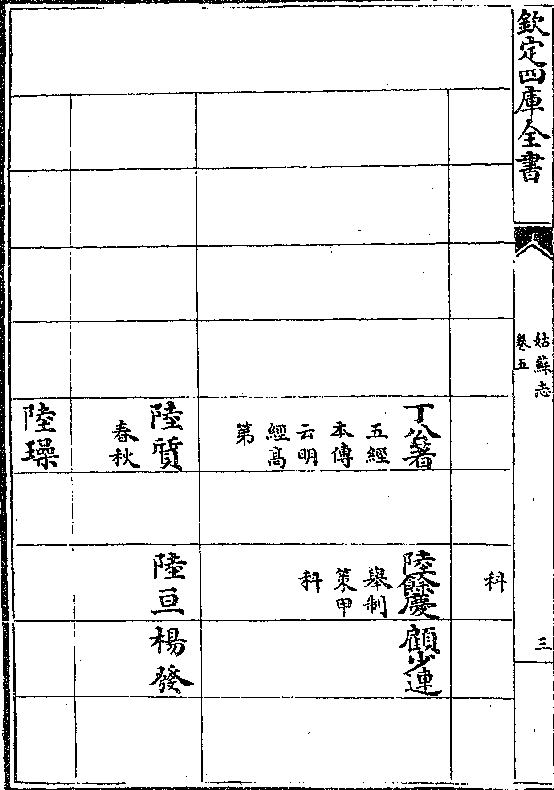 欽定四庫全書
姑蘇志
卷五
三
科
丁公著
五經
本傳
云明
經高
第
陸餘慶
舉制
策甲
科
顧少連
陸質
春秋
陸亘
楊發
陸璪